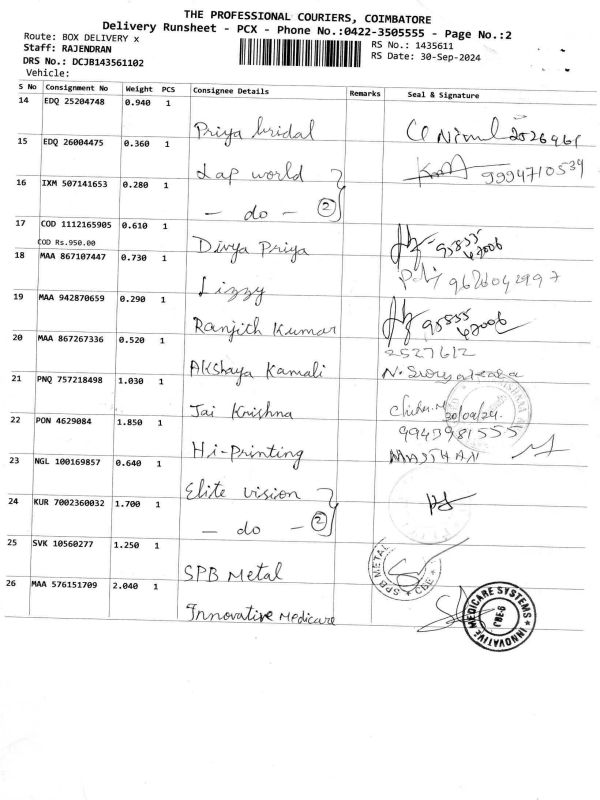 THE PROFESSIONAL COURIERS, COIMBATORE
Delivery Runsheet - PCX - Phone No.:0422-3505555 - Page No.:2
Route: BOX DELIVERY x
RS No.: 1435611
Staff: RAJENDRAN
RS Date: 30-Sep-2024
DRS No.: DCJB143561102
Vehicle:
S No Consignment No Weight PCS Consignee Details Remarks Seal & Signature
14 EDQ 25204748 0.940 1
Priya bridal
15 EDQ 26004475 0.360 1
Lap world 9994710534
16 IXM 507141653 0.280 1
- do - 2
17 COD 1112165905 0.610 1
COD Rs.950.00
Divya Priya 95855 67006
18 MAA 867107447 0.730 1
Lizzy 9626042997
19 MAA 942870659 0.290 1
Ranjith Kumar 95855 67006
20 MAA 867267336 0.520 1 2527612
Akshaya Kamali
21 PNQ 757218498 1.030 1
Jai Krishna 30/09/24.
22 PON 4629084 1.850 1 9943981555
Hi-Printing MASTHAN
23 NGL 100169857 0.640 1
Elite vision
24 KUR 7002360032 1.700 1
- do - 2
25 SVK 10560277 1.250 1
SPB Metal SPB METAL * CBE *
26 MAA 576151709 2.040 1
Innovative Medicare INNOVATIVE MEDICARE SYSTEMS * CBE-6 *